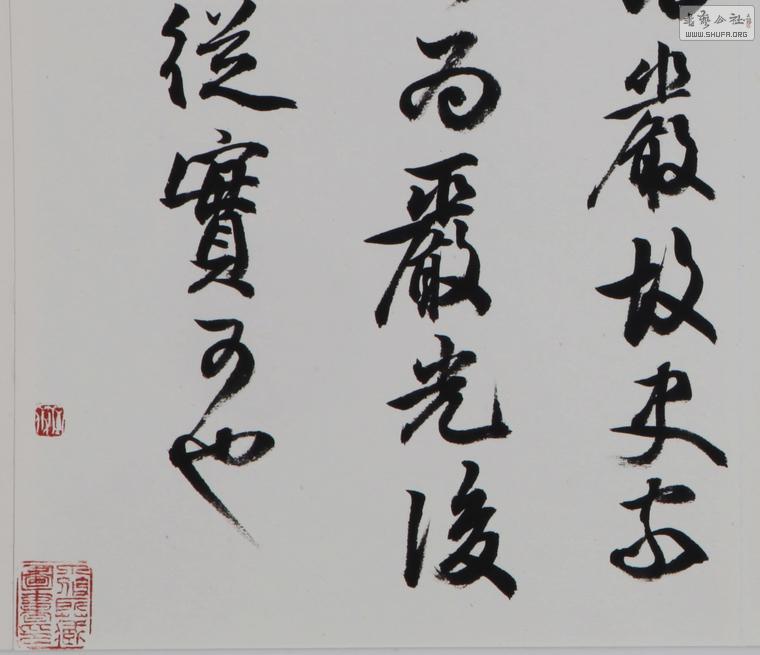 嚴故史家
為嚴光後
從實可也
書藝公社
WWW.SHUFA.ORG